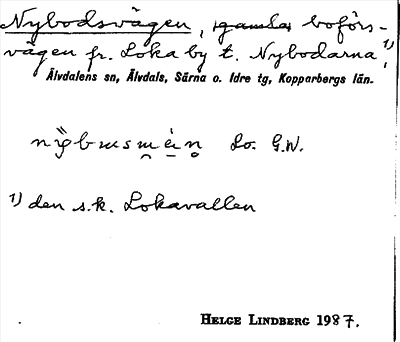 Nybodsvägen, gamla, boförs-
vägen fr. Loka by t. Nybodarna 1),
Älvdalens sn, Älvdals, Särna o. Idre tg, Kopparbergs län.
Lo. G.W.
1) den s.k. Lokavallen
HELGE LINDBERG 1987.